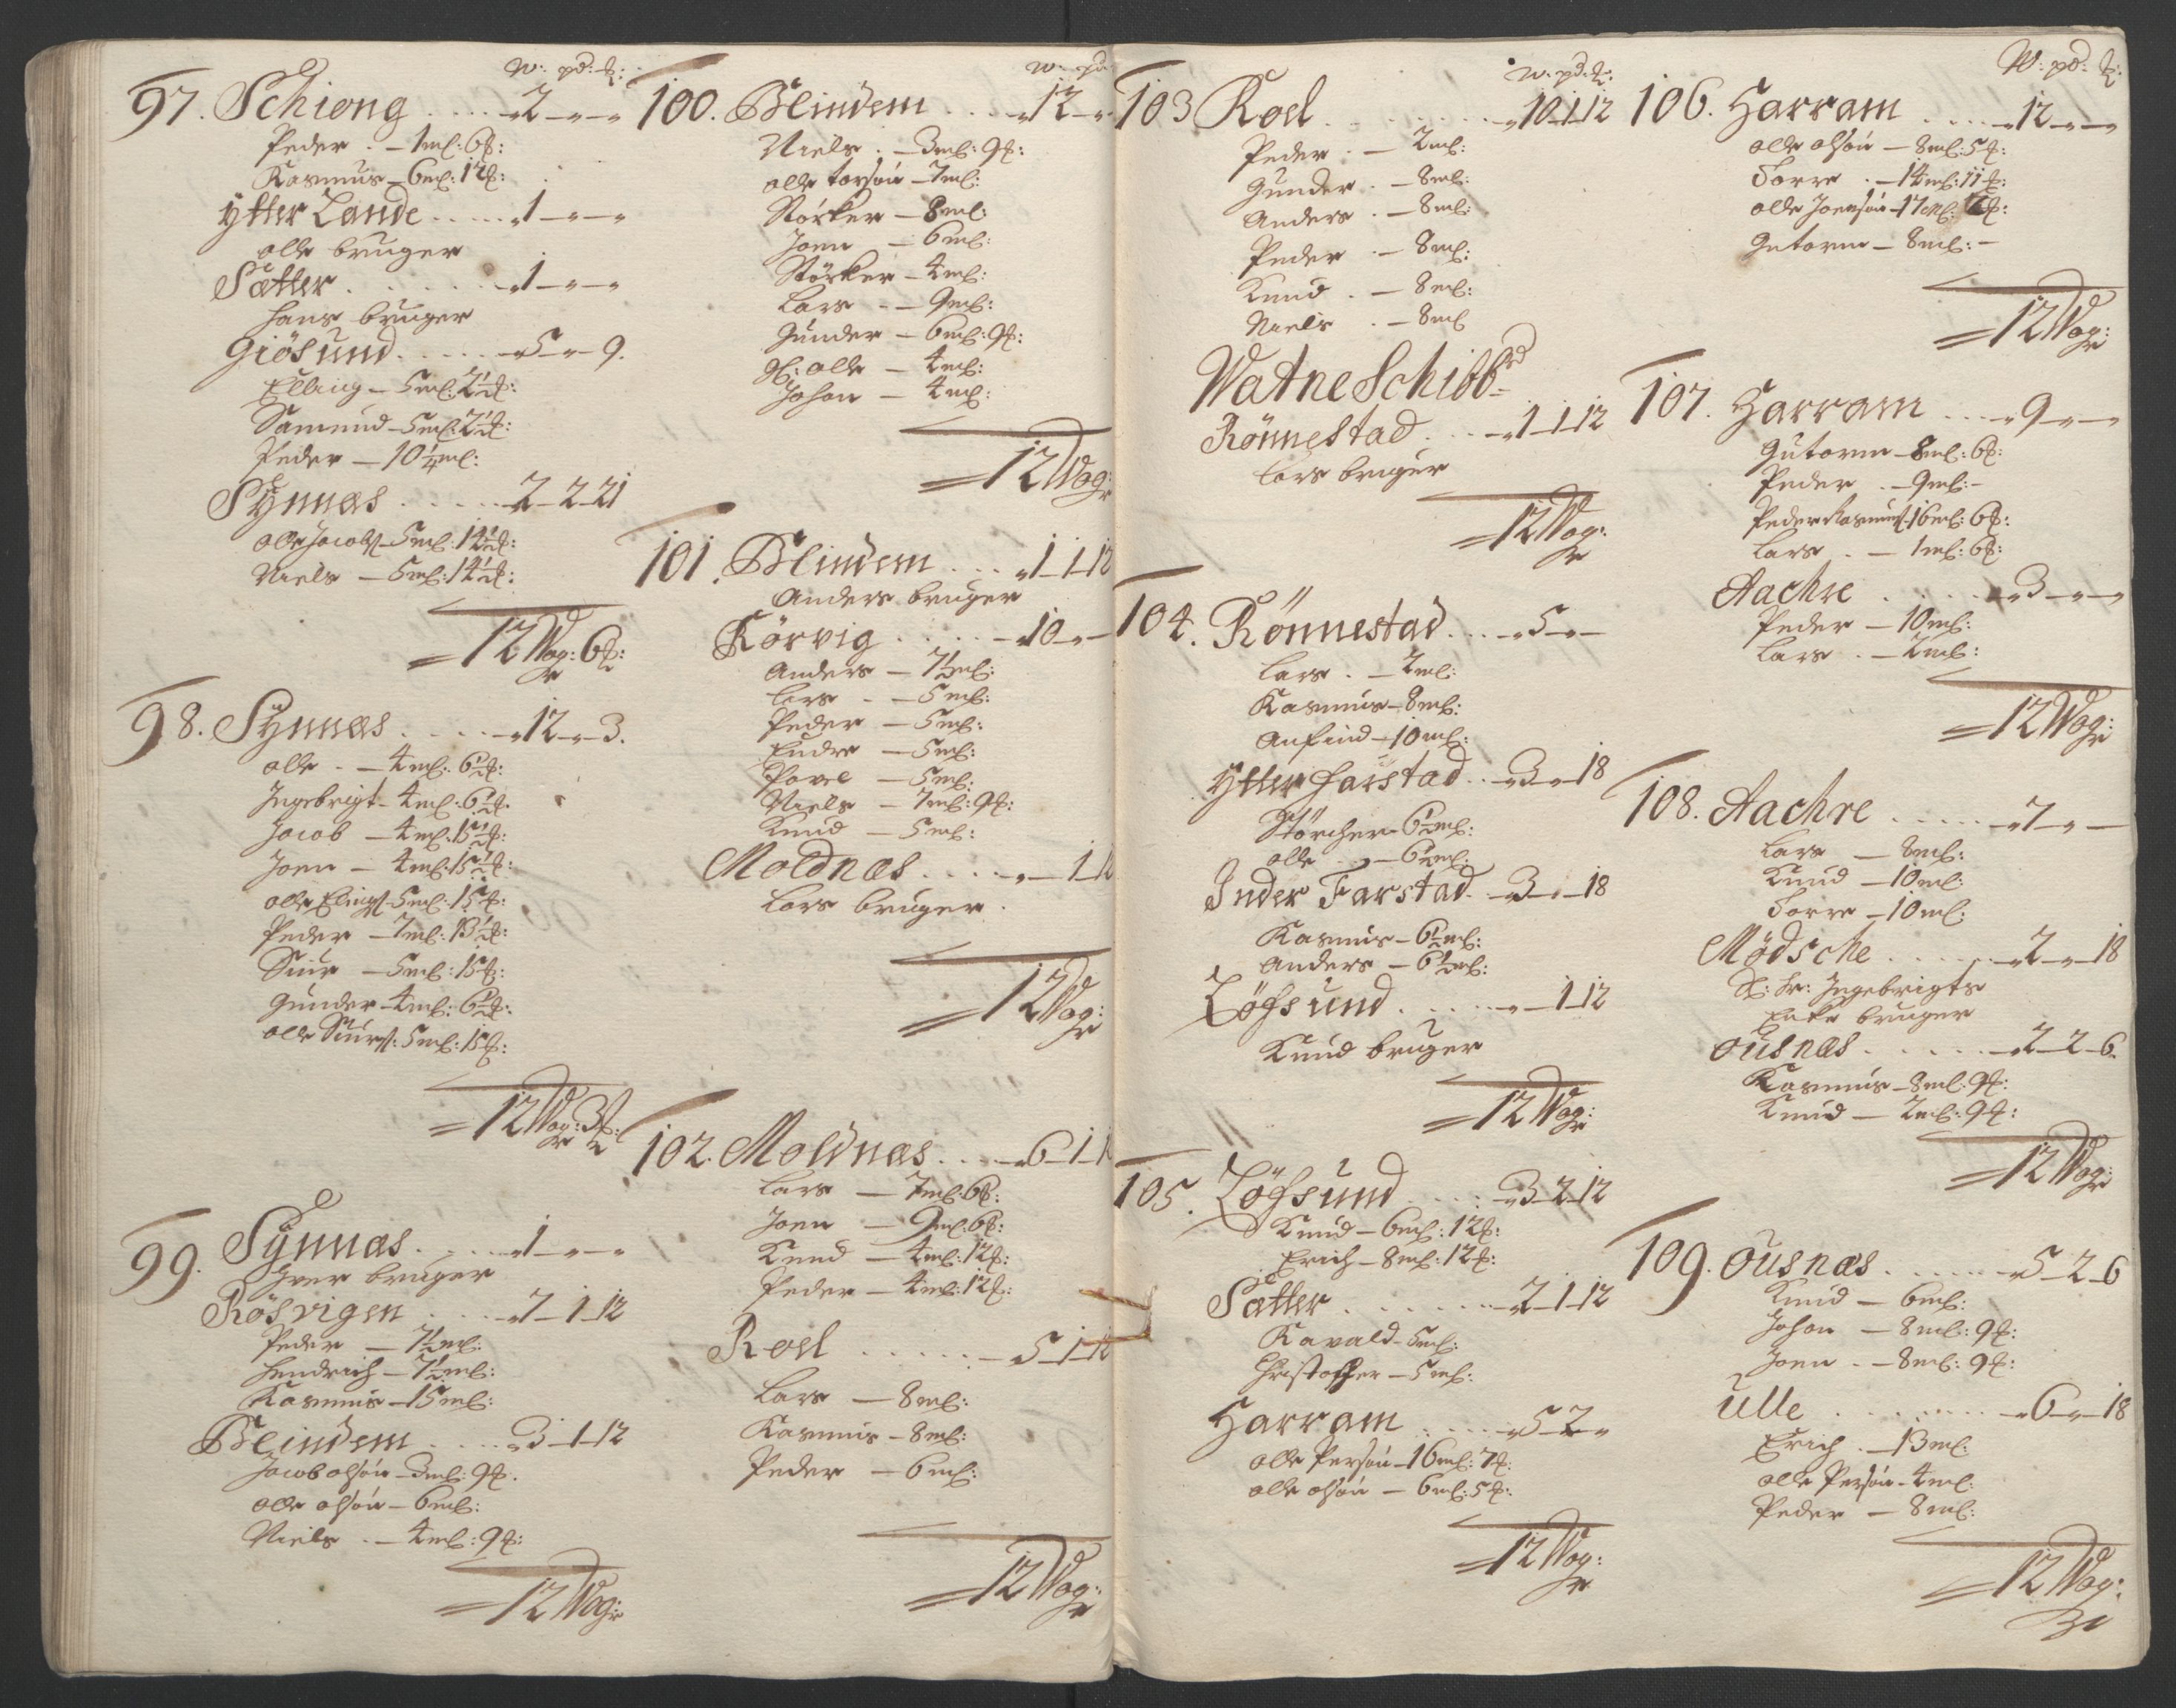 W: pd: ℔:
97. Schiong . . . . 2 - „ - „
Peder . - 1 ml: 6 ℔:
Rasmus - 6 ml: 12 ℔:
Ytter Lande . . . . . 1 - „ - „
olle bruger
Sætter . . . . . . 1 - „ - „
Hans bruger
Giösund . . . . . 5 - „ - 9.
Elling - 5 ml: 2½ ℔:
Samund - 5 ml: 2½ ℔:
Peder - 10¼ ml:
Synnæs . . . . . 2 - 2 - 21
olle Jacobs - 5 ml: 14½ ℔:
Niels - 5 ml: 14½ ℔:
= 12 Wog: 6 ℔:
98. Synnæs . . . . . 12 - „ - 3.
olle . - 4 ml: 6½ ℔:
Ingebrigt - 4 ml: 6½ ℔:
Jacob - 4 ml: 15½ ℔:
Joen - 4 ml: 15½ ℔:
olle Elings - 5 ml: 15 ℔:
Peder - 7 ml: 13½ ℔:
Siur - 5 ml: 15 ℔:
Gunder - 4 ml: 6½ ℔:
olle Siurs: 5 ml: 15 ℔:
= 12 Wog: 3 ℔:
99. Synnæs . . . . 1 - „ - „
Iver bruger
Rösvigen . . . . 7 - 1 - 12
Peder - 7½ ml:
Hendrich - 7½ ml:
Rasmus - 15 ml:
Blindem . . . . 3 - 1 - 12
Jacob olsön - 3 ml: 9 ℔:
olle olsön - 6 ml:
Niels . - 4 ml: 9 ℔:
= 12 Wog:
W: pd:
100. Blindem . . . 12 - „
Niels . - 3 ml: 9 ℔:
olle torsön - 7 ml:
Störker - 8 ml:
Joen - 6 ml:
Störker - 4 ml:
Lars . - 9 ml:
Gunder - 6 ml: 9 ℔:
gl: olle - 4 ml:
Johan - 4 ml:
= 12 Wog:
101. Blindem . . . 1 - 1 - 12
Anders bruger
Rörvig . . . . . 10 - „ -
Anders - 7½ ml:
Lars . - 5 ml:
Peder - 5 ml:
Endre - 5 ml:
Povel - 5 ml:
Niels - 7 ml: 9 ℔:
Knud - 5 ml:
Moldnæs . . . . „ - 1 - 1
Lars bruger .
= 12 Wog:
102. Moldnæs . . . . 6 - 1 - 1
Lars - 7 ml: 6 ℔:
Joen - 9 ml: 6 ℔:
Knud - 4 ml: 12 ℔:
Peder - 4 ml: 12 ℔:
Roel . . . . . . 5 - 1 - 12
Lars - 8 ml:
Rasmus - 8 ml:
Peder - 6 ml:
= 12 Wog:
W: pd: ℔:
103 Roel . . . . . . . 10 - 1 - 12
Peder . - 2 ml:
Gunder . - 8 ml:
Anders . - 8 ml:
Peder . - 8 ml:
Knud . - 8 ml:
Niels . - 8 ml
Watne Schibb:rd
Rönnestad . . . 1 - 1 - 12
Lars bruger
= 12 Wog:
104. Rönnestad . . . 5 - „ -
Lars . - 2 ml:
Rasmus - 8 ml:
Anfind - 10 ml:
Ytter Farstad . . 3 - „ - 18
Störcher - 6½ ml:
olle . . - 6½ ml:
Inder Farstad . 3 - „ - 18
Rasmus - 6½ ml:
Anders - 6½ ml:
Löfsund . . . . . „ - 1 - 12
Knud bruger
= 12 Wog:
105. Löfsund . . . . 3 - 2 - 12
Knud - 6 ml: 12 ℔:
Erich - 8 ml: 12 ℔:
Sætter . . . . . . . 2 - 1 - 12
Ravald - 5 ml:
Christoffer - 5 ml:
Harram . . . . 5 - 2 - „
olle Persön - 16 ml: 7 ℔:
olle olsön - 6 ml: 5 ℔:
= 12 Wog:
W: pd: ℔:
106. Harram . . . . 12 - „ - „
olle olsön - 8 ml: 5 ℔:
Torre . - 14 ml: 11 ℔:
olle Joensön - 17 ml: ℔:
Gutorm - 8 ml: -
= 12 Wog:
107. Harram . . . 9 - „ - „
Gutorm - 8 ml: 6 ℔:
Peder . - 9 ml: -
Peder Rasmus - 16 ml: 6 ℔:
Lars . . - 1 ml: 6 ℔:
Aachre . . . . . 3 - „ - „
Peder - 10 ml:
Lars . - 2 ml:
= 12 Wog:
108. Aachre . . . . . 7 - „ -
Lars - 8 ml:
Knud - 10 ml:
Torre - 10 ml:
Mödsche . . . . . . 2 - „ - 18
Sl: Hr: Ingebrigts
Enke bruger
Ousnæs . . . . . . 2 - 2 - 6.
Rasmus - 8 ml: 9 ℔:
Knud - 2 ml: 9 ℔:
= 12 Wog:
109. Ousnæs . . . . . 5 - 2 - 6
Knud - 6 ml:
Johan - 8 ml: 9 ℔:
Joen . - 8 ml: 9 ℔:
Ulle . . . . . . . . 6 - „ - 18
Erich . - 13 ml:
olle Persön - 4 ml:
Peder - 8 ml:
= 12 Wog: